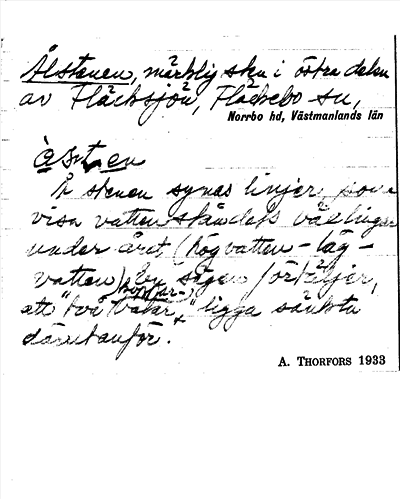 Ålstenen, märklig sten i östra delen
av Fläcksjön, Fläckebo sn,
Norrbo hd, Västmanlands län
På stenen synas linjer, som
visa vattenståndets växlingar
under året, (högvatten - låg-
vatten) sägen förtäljer,
att "två båtar" ligga sänkta
därutanför.
A. THORFORS 1933